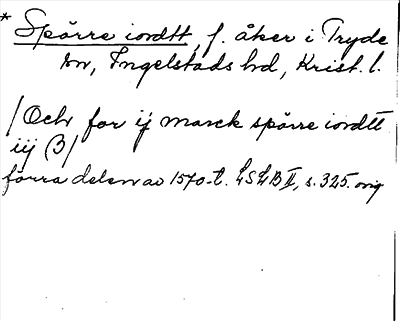 * Spörre iordtt, f. åker i Tryde
sn, Ingelstads hd, Krist. l.
/Och for ij marck spörre iordtt
iij β/
förra delen av 1570-t. LSLB II, s. 325. orig